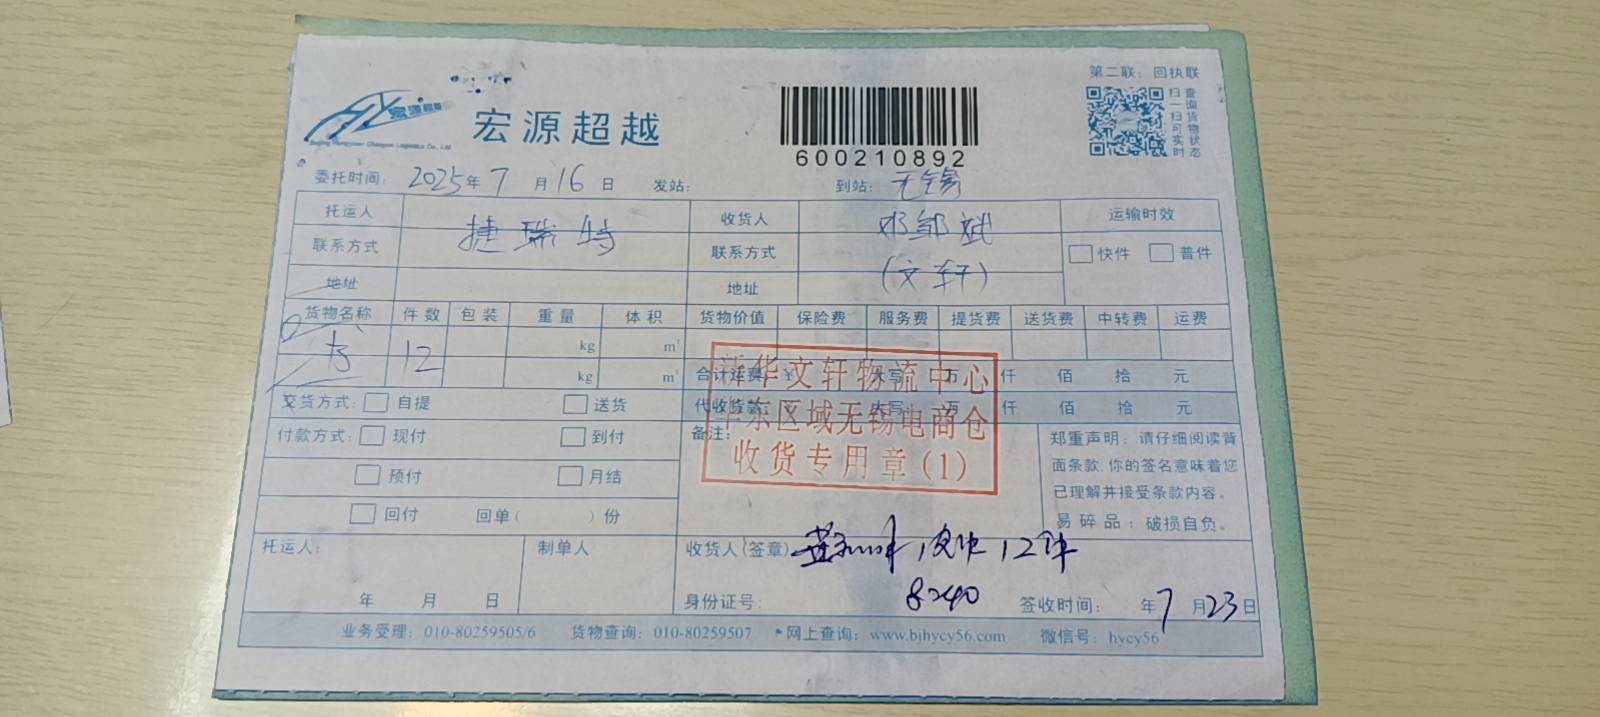 第二联：回执联
宏源超越
600210892
扫一扫可实时
查询货物状态
委托时间：2025年7月16日 发站： 到站：无锡
托运人 捷瑞特 收货人 邓邹斌 运输时效
联系方式 联系方式 快件 普件
地址 地址 (文轩)
货物名称 件数 包装 重量 体积 货物价值 保险费 服务费 提货费 送货费 中转费 运费
书 12 kg m³
kg m³ 合计运费：¥ 大写 万 仟 佰 拾 元
交货方式： 自提 送货 代收货款：¥ 大写 万 仟 佰 拾 元
新华文轩物流中心
华东区域无锡电商仓
收货专用章(1)
付款方式： 现付 到付 备注：
预付 月结
回付 回单( )份
郑重声明：请仔细阅读背
面条款,你的签名意味着您
已理解并接受条款内容。
易碎品：破损自负。
托运人： 制单人 收货人(签章) 12件
8240
年 月 日 身份证号： 签收时间： 年7月23日
业务受理：010-80259505/6 货物查询：010-80259507 网上查询：www.bjhycy56.com 微信号：hycy56